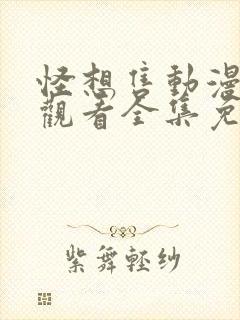 怪想隹動漫
觀看全集免
紫舞輕紗